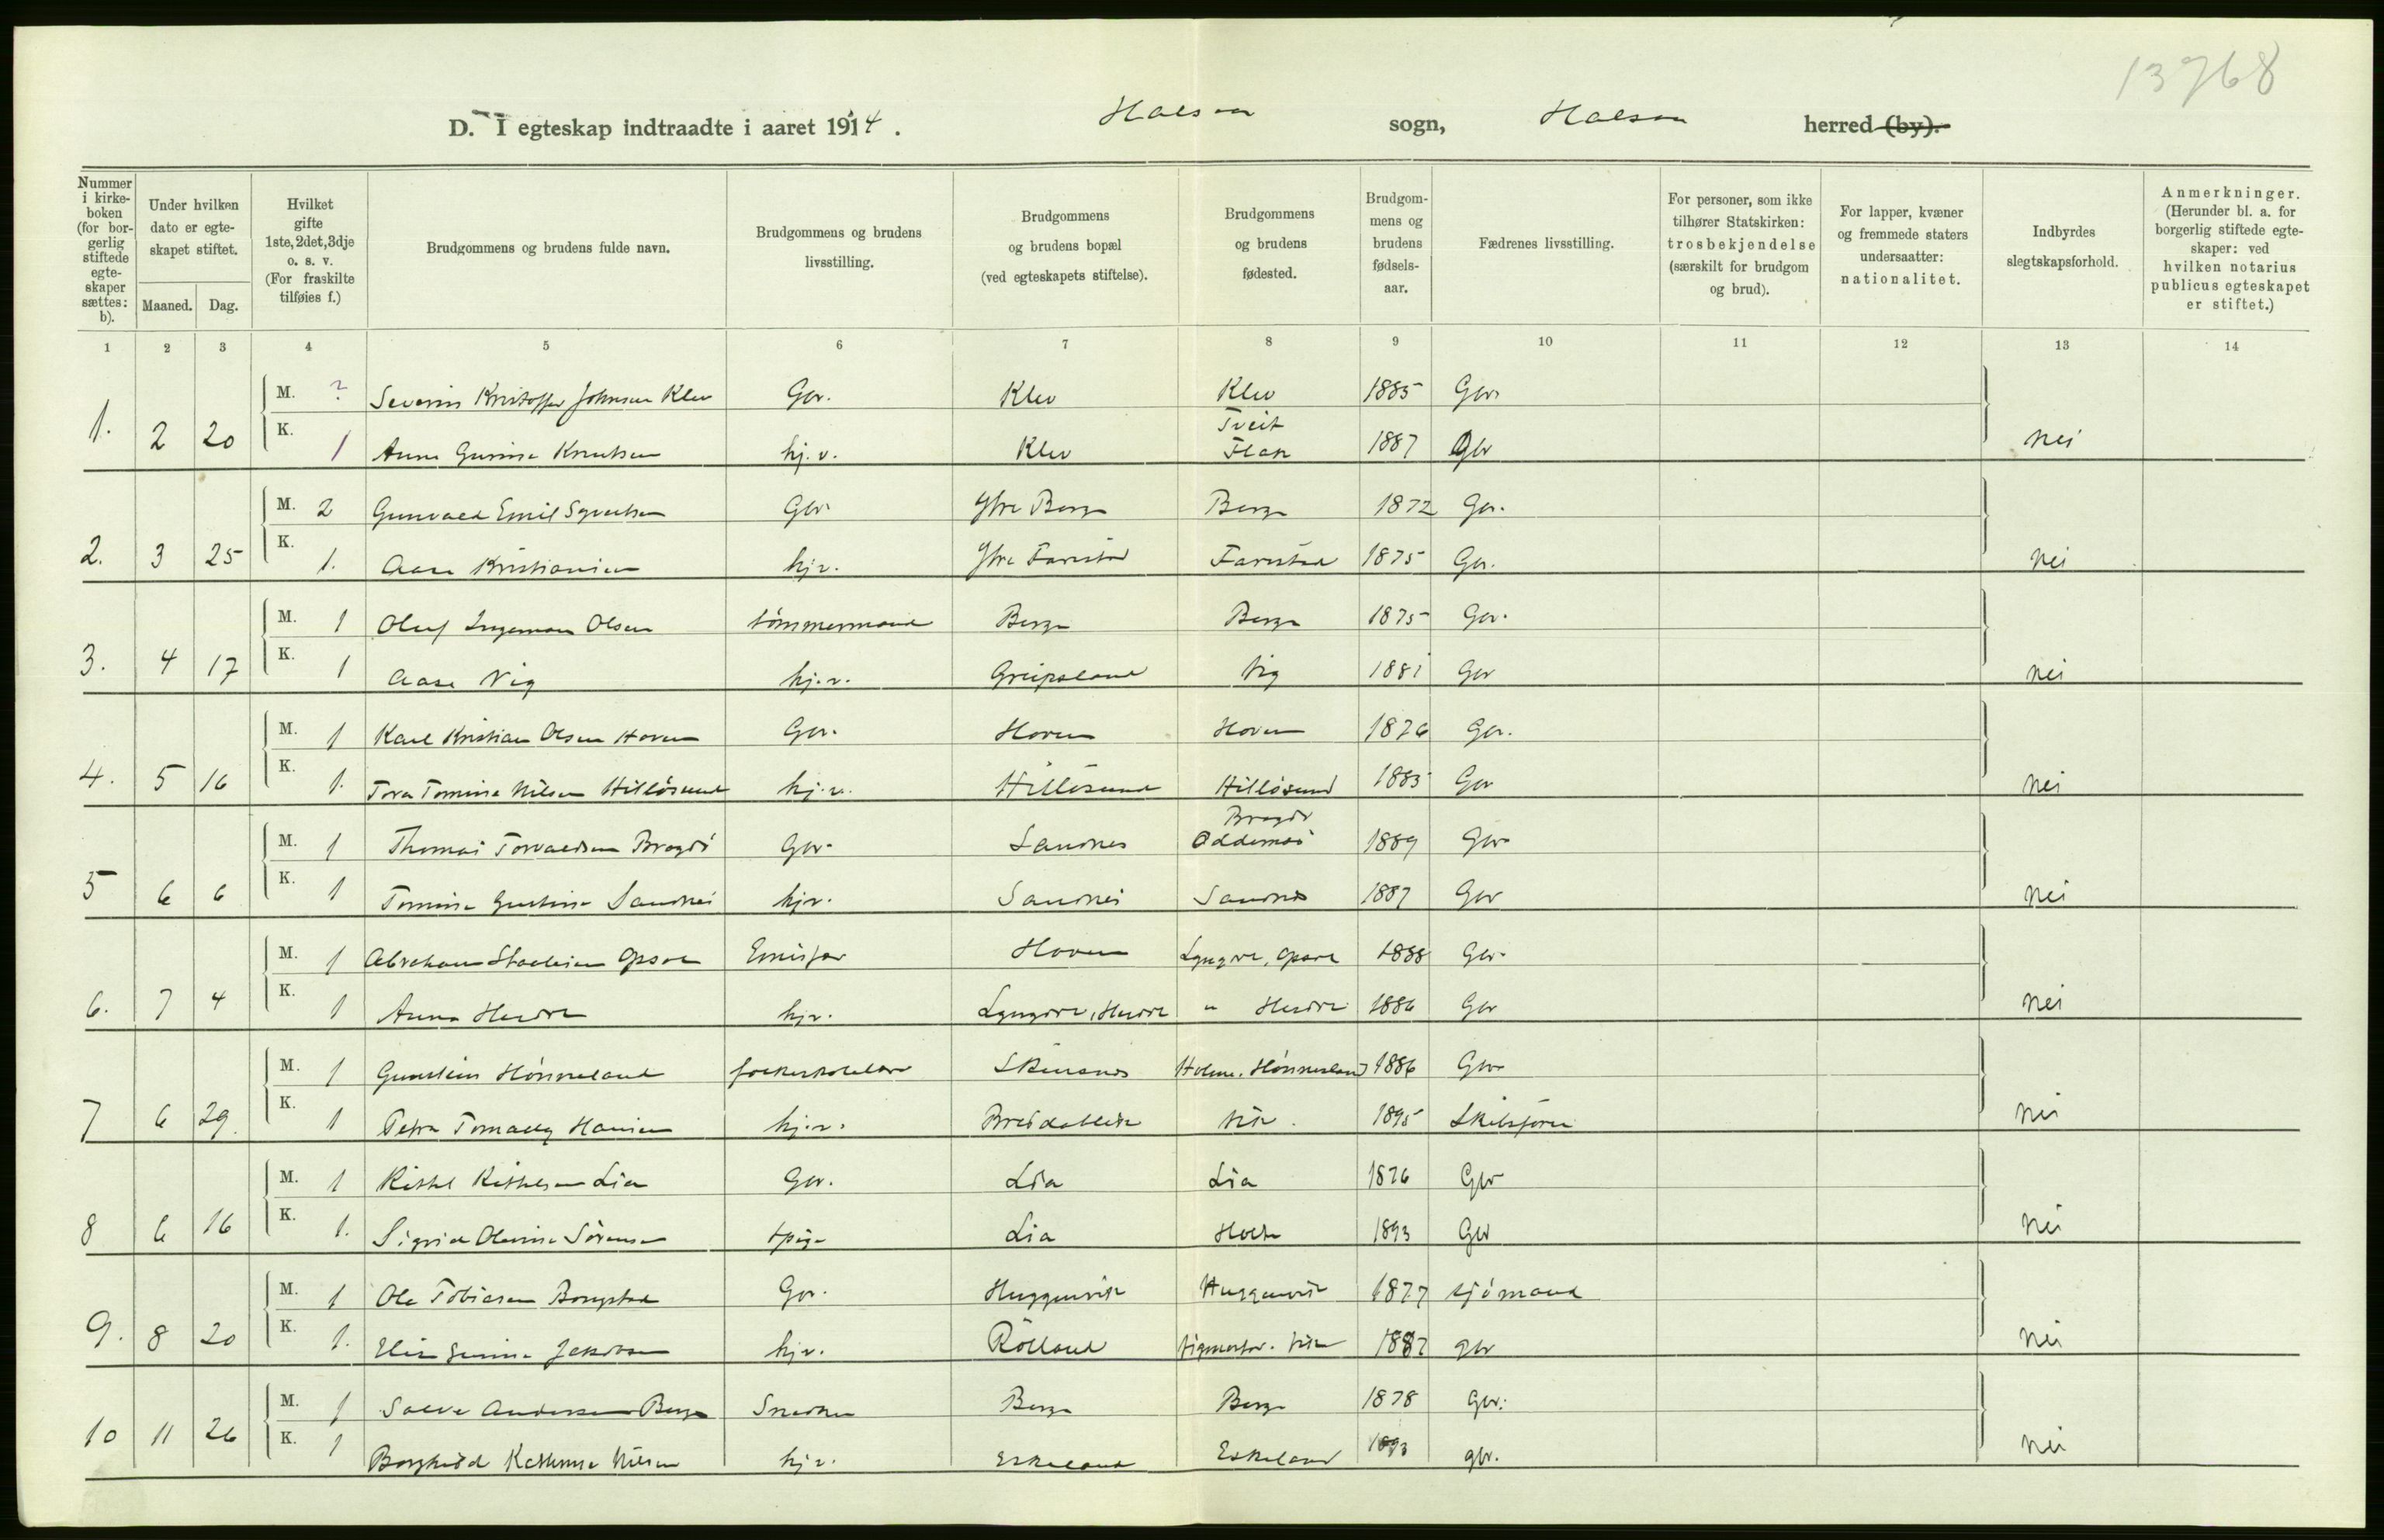 13768
D. I egteskap indtraadte i aaret 1914. Halsaa sogn, Halsaa herred (by).
Nummer i kirkeboken (for borgerlig stiftede egteskaper sættes: b).
Under hvilken dato er egteskapet stiftet.
Maaned. Dag.
Hvilket gifte 1ste, 2det, 3dje o. s. v. (For fraskilte tilføies f.)
Brudgommens og brudens fulde navn.
Brudgommens og brudens livsstilling.
Brudgommens og brudens bopæl (ved egteskapets stiftelse).
Brudgommens og brudens fødested.
Brudgommens og brudens fødselsaar.
Fædrenes livsstilling.
For personer, som ikke tilhører Statskirken: trosbekjendelse (særskilt for brudgom og brud).
For lapper, kvæner og fremmede staters undersaatter: nationalitet.
Indbyrdes slegtskapsforhold.
Anmerkninger. (Herunder bl. a. for borgerlig stiftede egteskaper: ved hvilken notarius publicus egteskapet er stiftet.)
1 2 3 4 5 6 7 8 9 10 11 12 13 14
M. ? Severin Kristoffer Johnsen Klev Gbr. Klev Klev 1885 Gbr
Tveit
1. 2 20 K. 1 Anna Gurine Knutsen hj. v. Klev Flak 1887 Gbr nei
M. 2 Gunvald Emil Syvertsen Gbr Ytre Berge Berge 1872 Gbr.
2. 3 25 K. 1. Aase Kristiansen hj.v. Ytre Farestad Farestad 1875 Gbr. nei
M. 1 Oluf Ingeman Olsen tømmermand Berge Berge 1875 Gbr.
3. 4 17 K. 1 Aase Vig hj.v. Greipsland Vig 1881 Gbr nei
M. 1 Karl Kristian Olsen Hoven Gbr. Hoven Hoven 1876 Gbr.
4. 5 16 K. 1. Tora Tomine Nilsen Hilløsund hj.v. Hilløsund Hilløsund 1885 Gbr nei
Bragdø
M. 1 Thomas Torvaldsen Bragdø Gbr. Sandnes Oddernes 1889 Gbr
5 6 6 K. 1 Tomine Gustine Sandnes hj.v. Sandnes Sandnes 1887 Gbr nei
M. 1 Abraham Staalesen Opsal Emissær Hoven Lyngdal, Opsal 1888 Gbr.
6. 7 4 K. 1 Anna Herdal hj.v. Lyngdal, Herdal " Herdal 1886 Gbr nei
M. 1 Gunstein Hønneland Skeisnes Holme. Hønneland 1886 Gbr
7 6 29. K. 1 Petra Tomally Hansen hj.v. Breidablik Vik. 1895 Skibsfører nei
M. 1 Kittel Kittelsen Lia Gbr. Lia Lia 1876 Gbr
8 6 16 K. 1. Sigrid Olavine Sørensen tpige Lia Holte 1893 Gbr nei
M. 1 Ole Tobiasen Bongstad Gbr. Huggenvik Huggenvik 1877 sjømand
9. 8 20 K. 1. Jakobsen hj.v. Rølland 1882 gbr nei
M. 1 Salve Andersen Berge Snedker Berge Berge 1878 Gbr.
10 11 26 K. 1 Borghild Kathrine Nilsen hj.v. Eskeland Eskeland 1893 gbr. nei